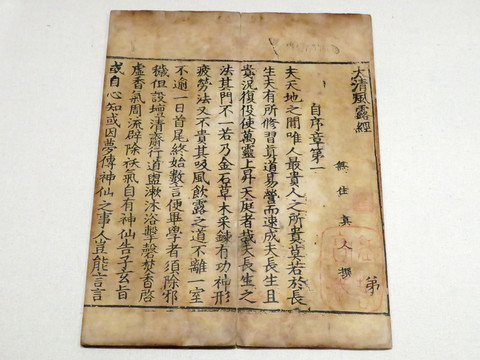 太清風露經
無住真人撰
自序章第一
夫天地之間唯人最貴人之所貴莫若於長
生夫有所修習真道易營而速成夫長生且
貴況復役使萬靈上昇天庭者哉夫長生之
法其門不一若乃金石草木采鍊有功神形
疲勞法又不貴其吸風飲露之道不離一室
不逾一日首尾終始數言便畢學者須除邪
穢但設壇清齋行道盥漱沐浴擊磬焚香啓
虛香氣周流辟除祅氣自有神仙告子玄旨
或自心知或因夢傳神仙之事豈能言言
第